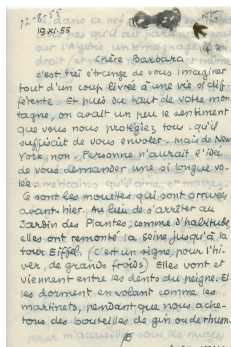 19 XI 55
Chère Barbara
c'est très étrange de vous imaginer
tout d'un coup livrée à une vie si dif-
férente. Et puis du haut de votre mon-
tagne, on avait un peu le sentiment
que vous nous protégiez tous. qu'il
suffisait de vous envoler. mais de New
York, non. Personne n'aurait l'idée
de vous demander une si longue vo-
lée.
Ce sont les mouettes qui sont arrivées
avant-hier. Au lieu de s'arrêter au
Jardin des Plantes, comme d'habitude,
elles ont remonté la Seine jusqu'à la
tour Eiffel. (C'est un signe, pour l'hi-
ver, de grands froids) Elles vont et
viennent entre les dents du peigne. Et
les dorment en volant comme les
martinets, pendant que nous ache-
tons des bouteilles de gin ou de rhum.